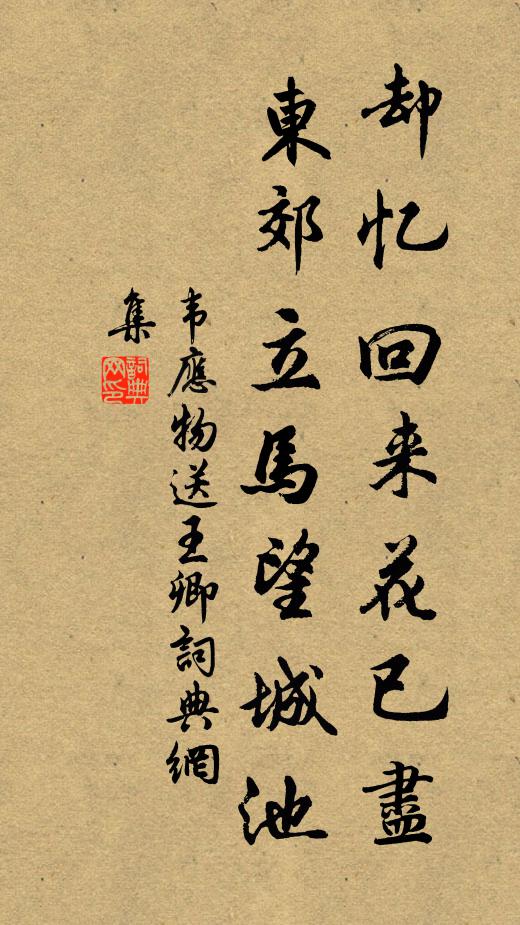 却忆回来花已盡
東郊立馬望城池
韦應物送王卿詞典網
集
詞典
网印